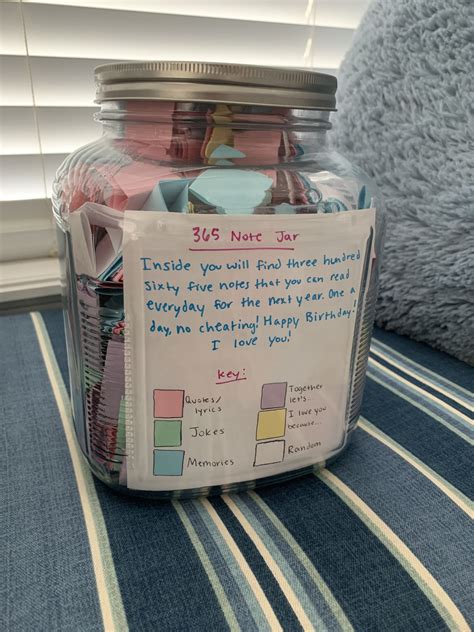 365 Note Jar
Inside you will find three hundred
sixty five notes that you can read
everyday for the next year. One a
day, no cheating! Happy Birthday!
I love you!
Key:
Quotes/
lyrics
Jokes
Memories
Together
let's...
I love you
because...
Random